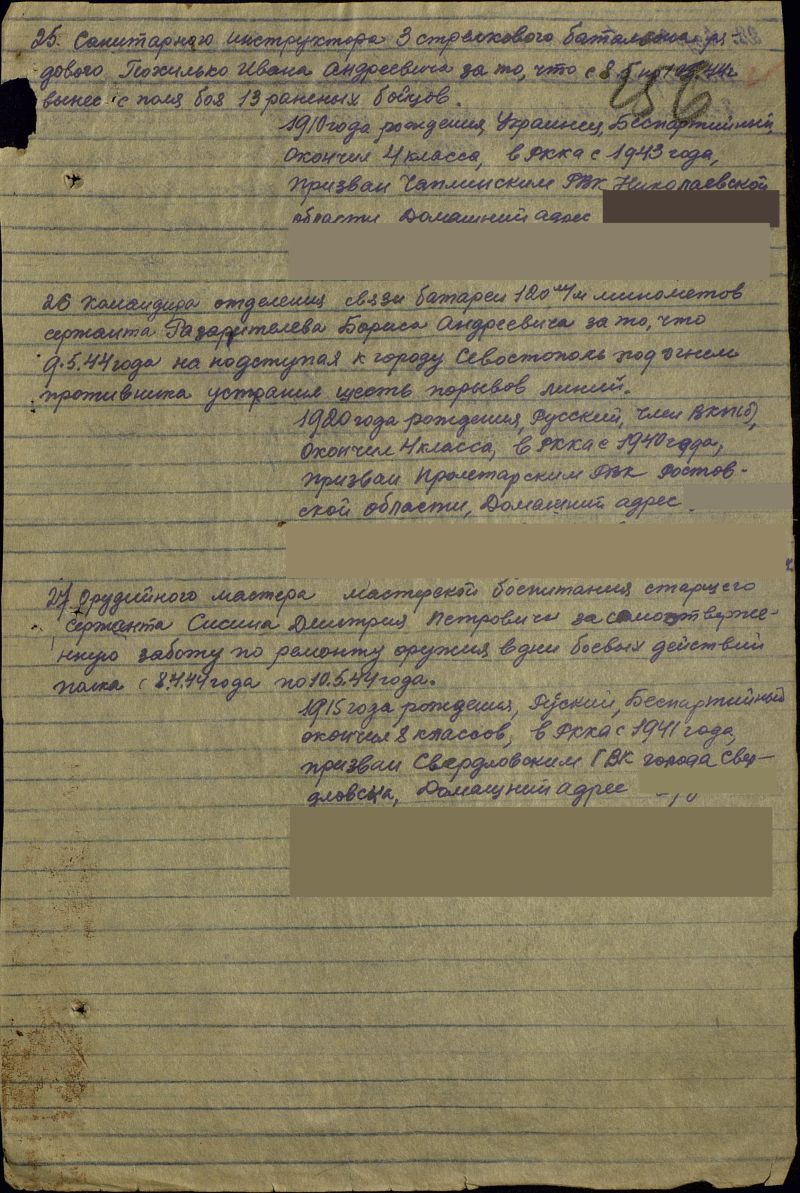 25. Санитарного инструктора 3 стрелкового батальона ря-
дового Пожилько Ивана Андреевича за то, что с 8.5 по
вынес с поля боя 13 раненых бойцов.
1910 года рождения, Украинец, Беспартийный,
Окончил 4 класса, в РККА с 1943 года,
призван Чаплинским РВК Николаевской
области Домашний адрес
26 Командира отделения связи батареи 120 м/м минометов
сержанта Разарителева Бориса Андреевича за то, что
9.5.44 года на подступах к городу Севостополь под огнем
противника устранил шесть порывов линий.
1920 года рождения, Русский, член ВКП(б),
Окончил 4 класса, в РККА с 1940 года,
призван Пролетарским РВК Ростов-
ской области, Домашний адрес
27 Орудийного мастера мастерской боепитания старшего
сержанта Сисина Дмитрия Петровича за самоотверже-
нную заботу по ремонту оружия в дни боевых действий
полка с 8.4.44 года по 10.5.44 года.
1915 года рождения, Руский, Беспартийный
окончил 8 классов, в РККА с 1941 года,
призван Свердловским ГВК города Свер-
дловска, Домашний адрес